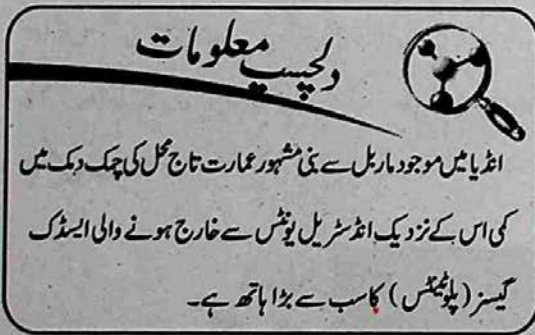 دلچسپ معلومات
انڈیا میں موجود ماربل سے بنی مشہور عمارت تاج محل کی چمک دمک میں
کمی اس کے نزدیک انڈسٹریل یونٹس سے خارج ہونے والی ایسڈک
گیسز (پلوٹینٹس) کا سب سے بڑا ہاتھ ہے۔